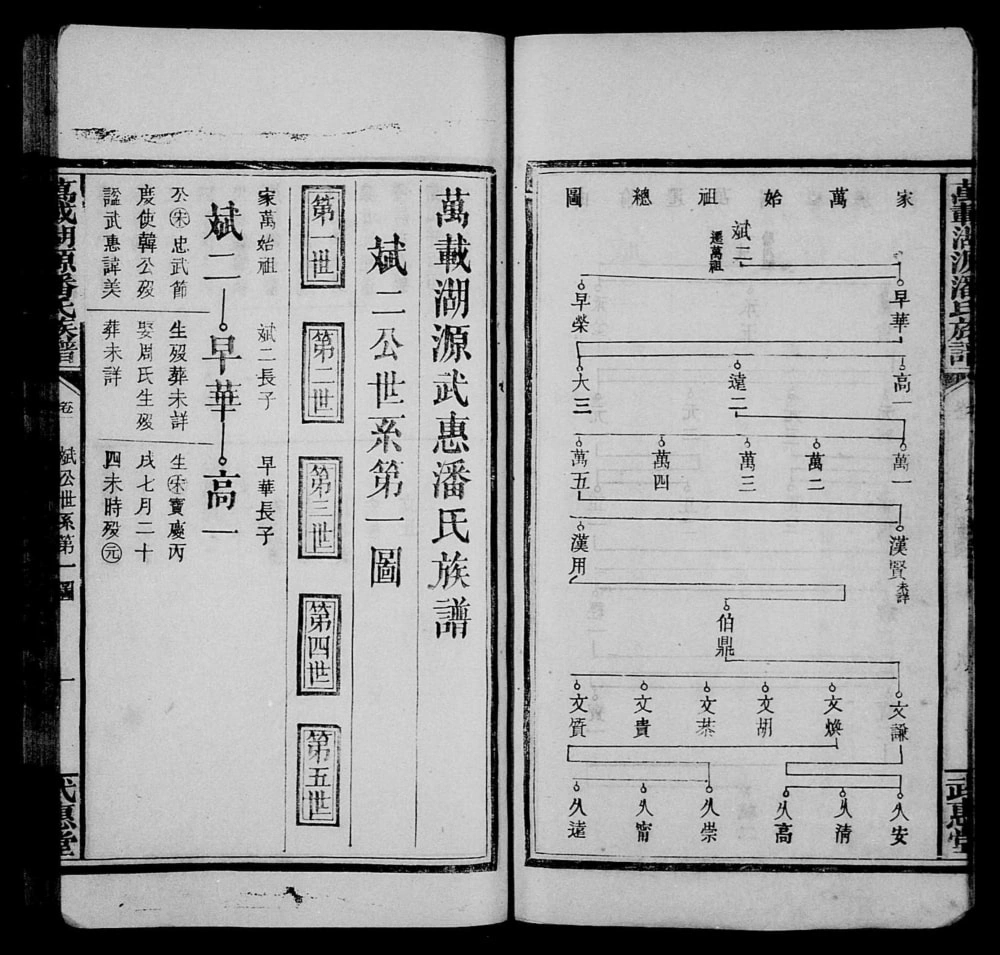 家萬始祖總圖
斌二
遷萬祖
早華
早榮
高一
遠二
大三
萬一
萬二
萬三
萬四
萬五
漢賢
未詳
漢用
伯鼎
文謙
文煥
文胡
文恭
文貴
文質
久安
久清
久高
久崇
久甯
久遠
萬載湖源潘氏族譜
武惠堂
萬載湖源武惠潘氏族譜
斌二公世系第一圖
第一世
第二世
第三世
第四世
第五世
家萬始祖
斌二長子
早華長子
斌二
早華
高一
公宋忠武節
慶使韓公歿
謚武惠諱美
生歿葬未詳
娶周氏生歿
葬未詳
生宋寶慶丙
戌七月二十
四未時歿元
萬載湖源潘氏族譜
卷一
斌公世系第一圖
一
武惠堂